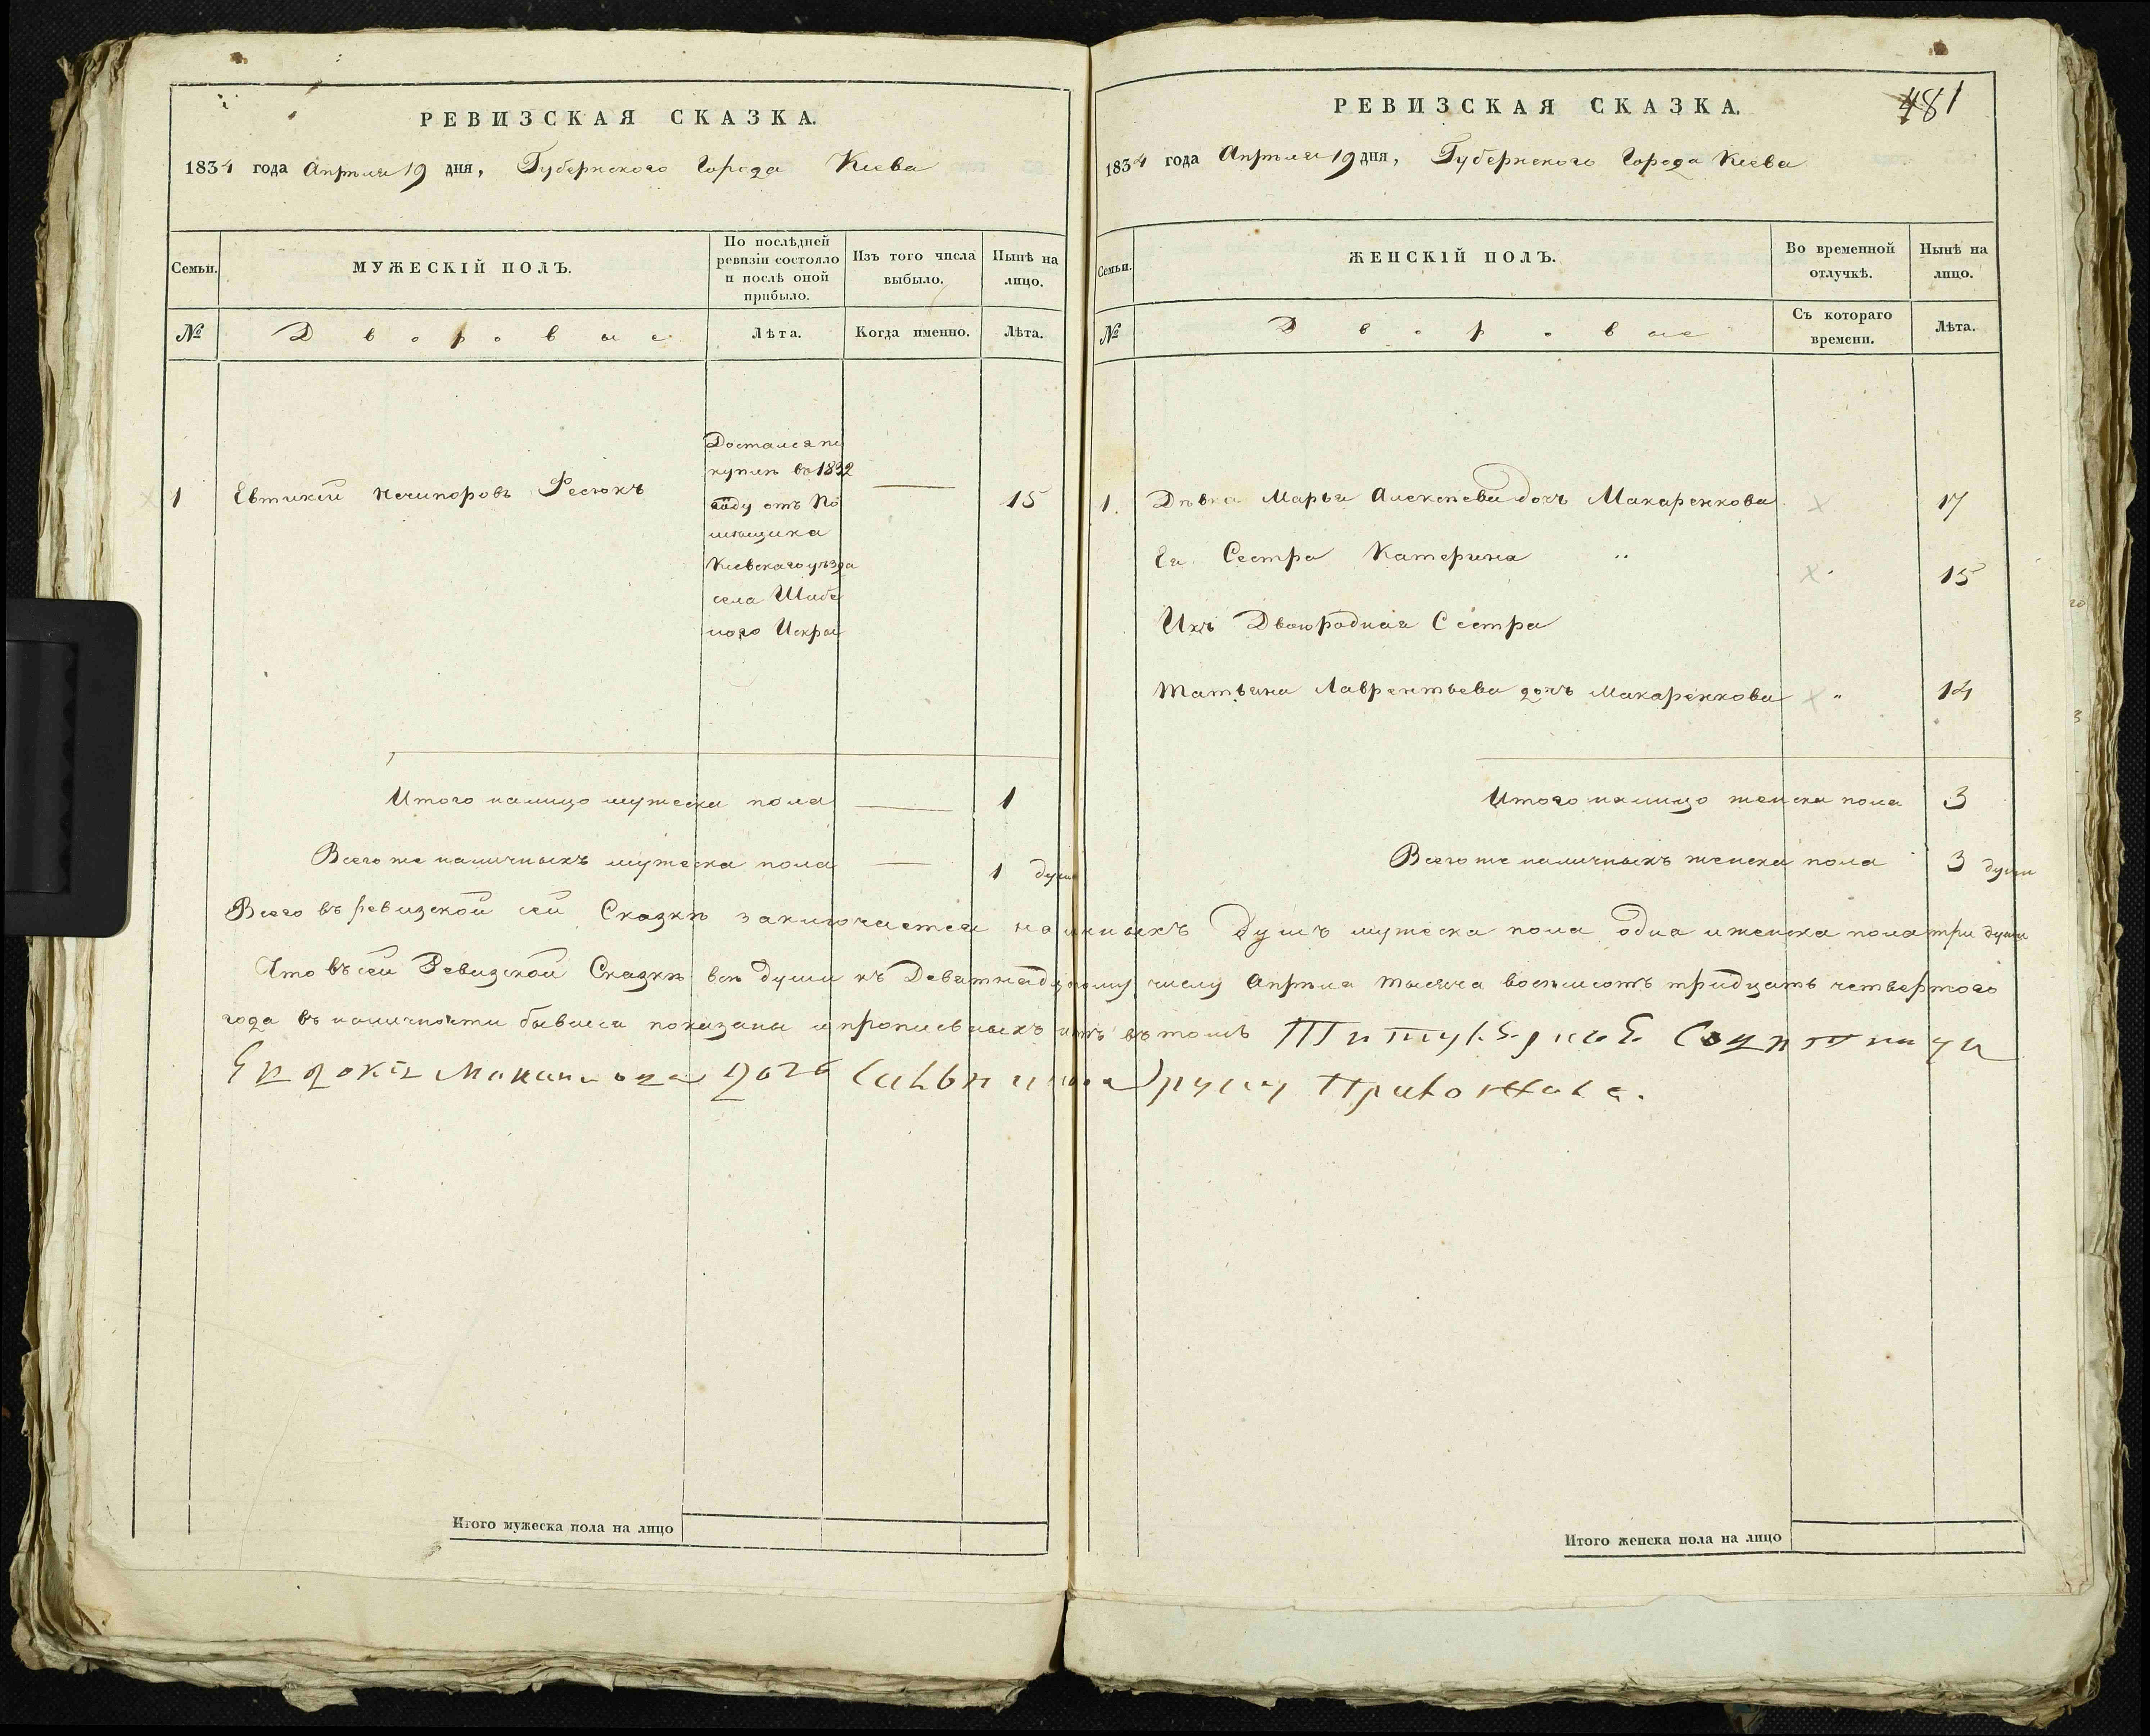 РЕВИЗСКАЯ СКАЗКА.
1834 года Апреля 19 дня, Губернского Города Киева
Семьи.
МУЖЕСКІЙ ПОЛЪ.
По послѣдней ревизіи состояло и послѣ оной прибыло.
Изъ того числа выбыло.
Нынѣ на лицо.
№
Дворовые
Лѣта.
Когда именно.
Лѣта.
1 Евтихій Нечипоровъ Фесюкъ 15
Достался по
купкѣ въ 1832
году отъ По
мѣщика
Кіевскаго уѣзда
села Шибе
ного Искры
Итого налицо мужеска пола 1
Всего же наличныхъ мужеска пола 1 душа
РЕВИЗСКАЯ СКАЗКА.
481
1834 года Апреля 19 дня, Губернского Города Киева
Семьи.
ЖЕНСКІЙ ПОЛЪ.
Во временной отлучкѣ.
Нынѣ на лицо.
№
Дворовые
Съ котораго времени.
Лѣта.
1. Дѣвка Марья Алексѣева дочь Макаренкова 17
Ея Сестра Катерина " 15
Ихъ Двоюродная Сестра
Татьяна Лаврентьева дочь Макаренкова " 14
Итого налицо женска пола 3
Всего же наличныхъ женска пола 3 души
Всего въ ревизской сей Сказкѣ заключается наличныхъ Душъ мужеска пола одна и женска пола три души
Что въ сей Ревизской Сказкѣ всѣ души къ Девятнадцатому числу Апреля тысяча восемьсотъ тридцать четвертого
года въ наличности бывшіа показаны и прописныхъ нѣтъ въ томъ
дочь руку Приложила.
Итого мужеска пола на лицо
Итого женска пола на лицо